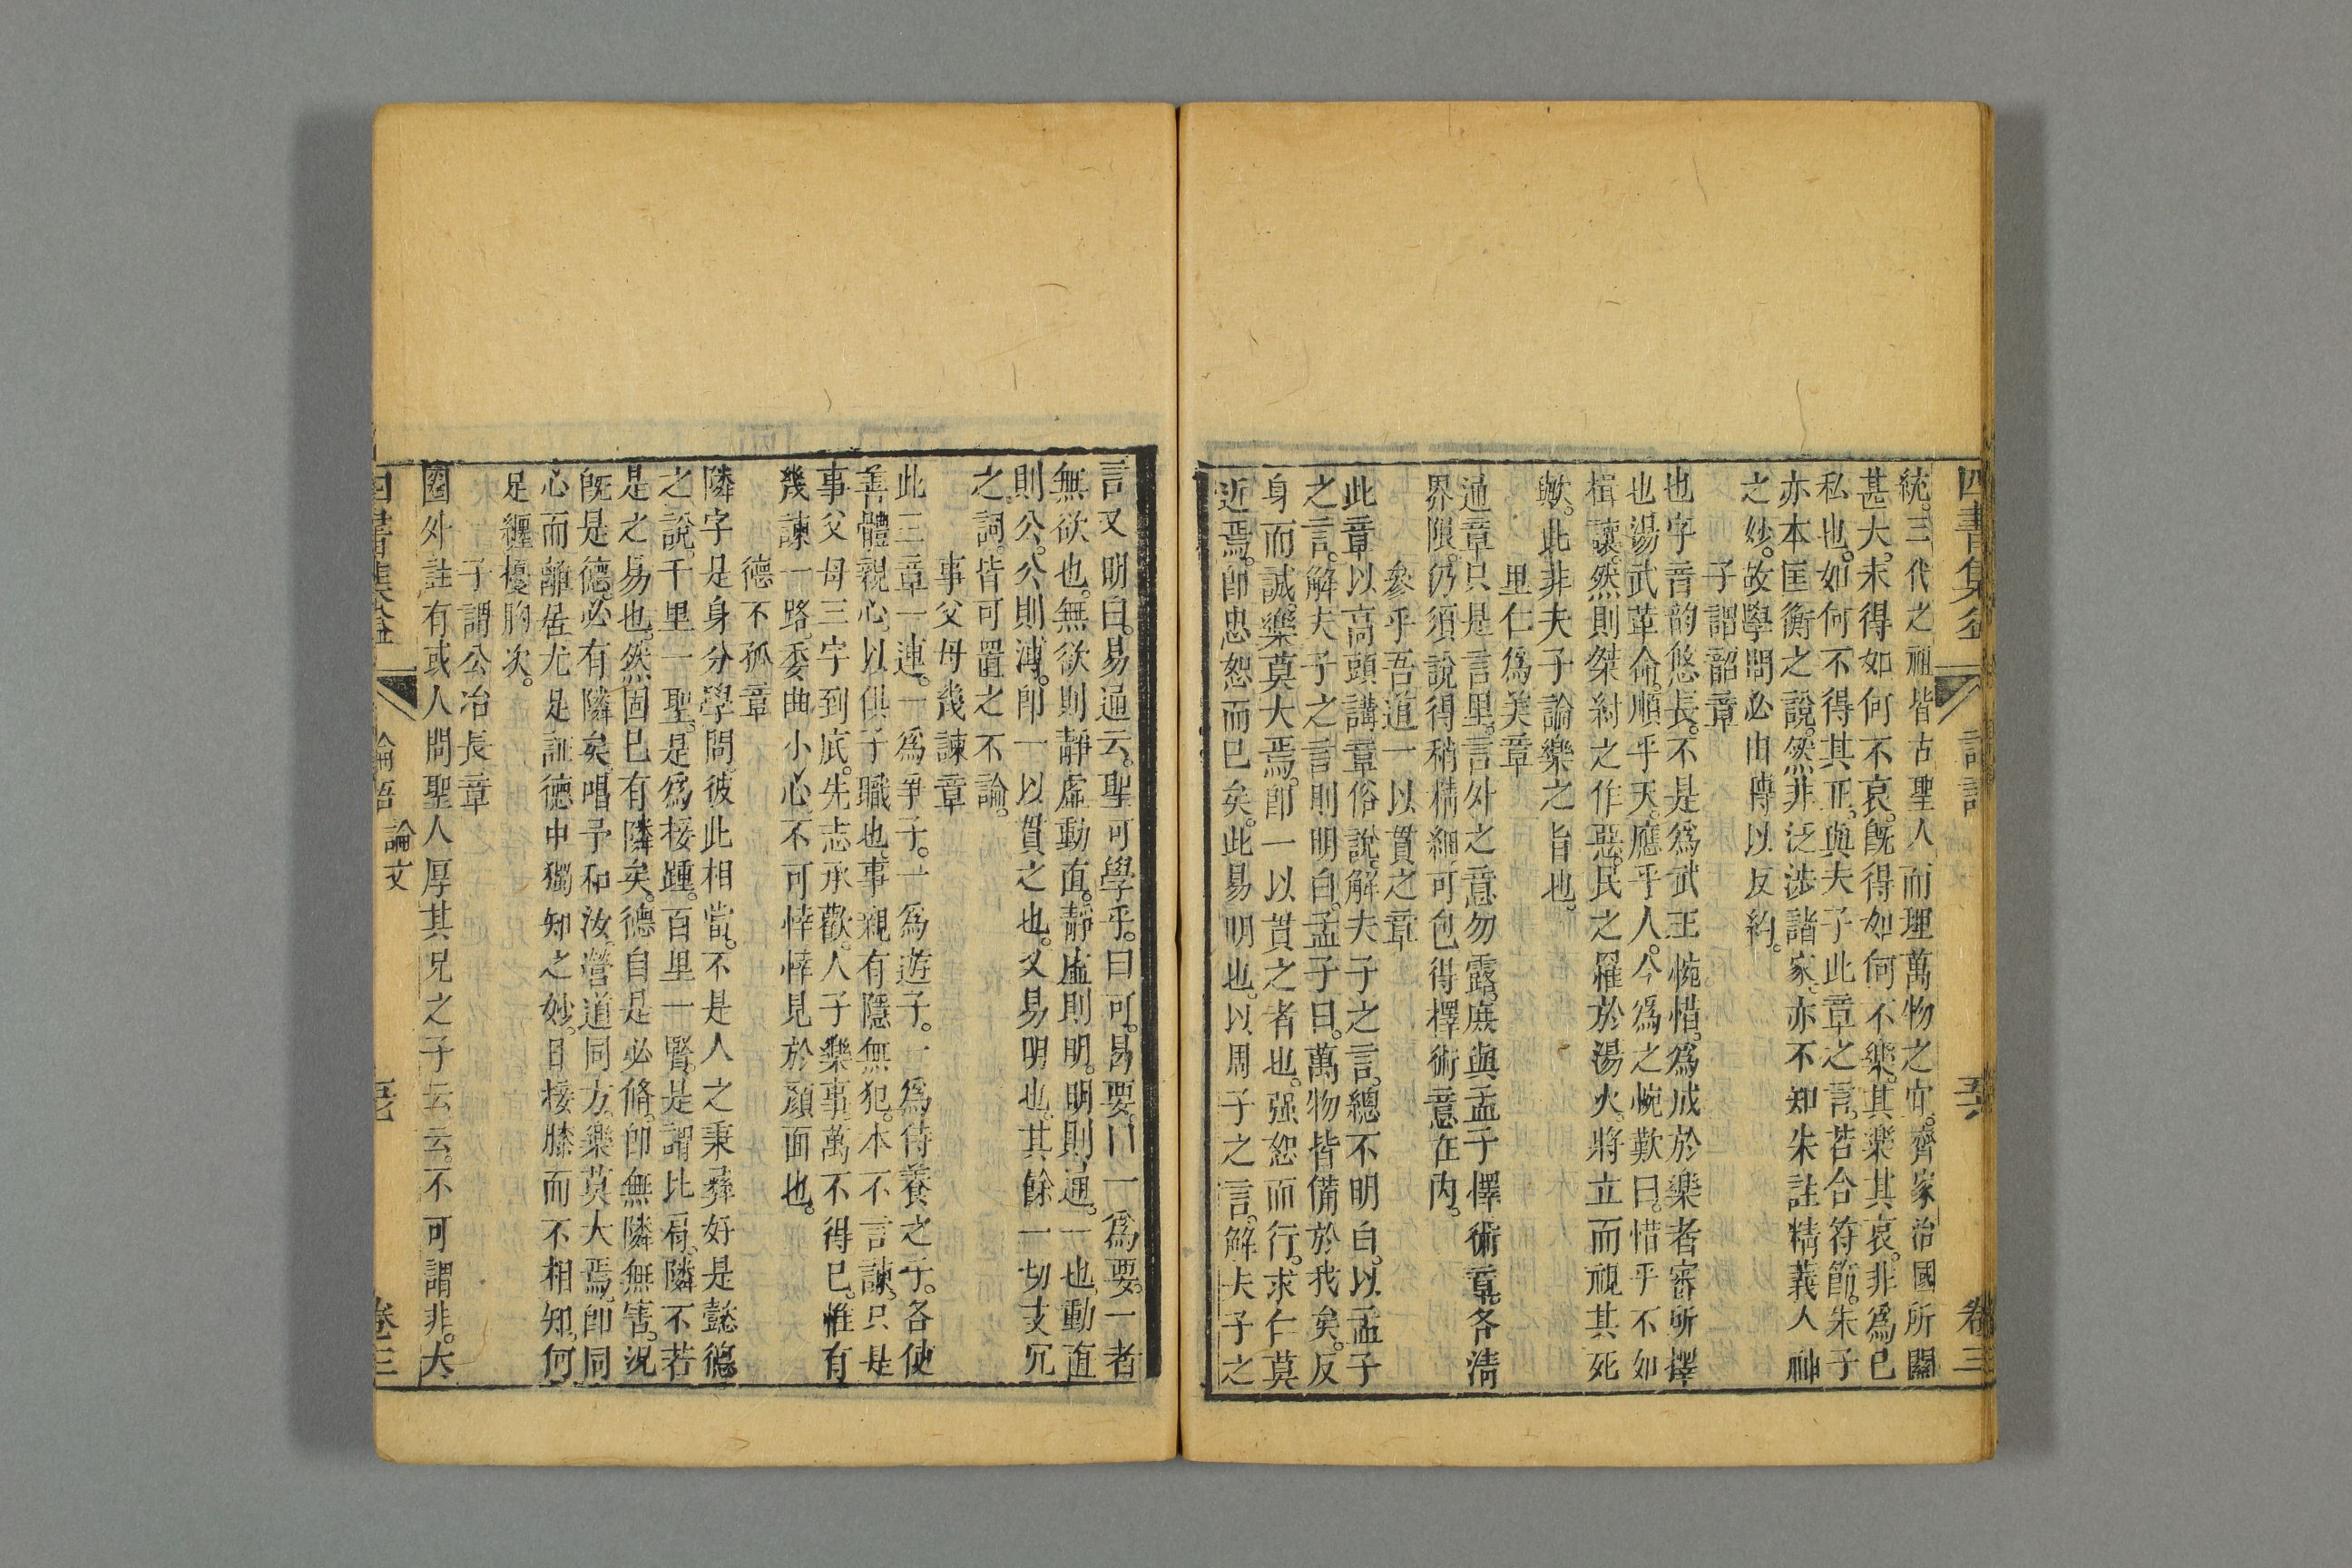 四書集益 卷三
統。三代之祖皆古聖人而理萬物之官。齊家治國所關
甚大。未得如何不哀。旣得如何不樂。其樂其哀。非爲己
私也。如何不得其正。與夫子此章之言。若合符節。朱子
亦本匡衡之說。然非泛涉諸家。亦不知朱註精義入神
之妙。故學問必由博以反約。
子謂韶章
也字音韵悠長。不是爲武王惋惜。爲成於樂者審所擇
也。湯武革命。順乎天。應乎人。今爲之惋歎曰。惜乎不如
楫讓。然則桀紂之作惡。民之罹於湯火。將立而視其死
歟。此非夫子論樂之旨也。
里仁爲美章
通章只是言里。言外之意勿露。庶與孟子擇術章。各淸
界限。仍須說得稍精細可包得擇術意在內。
參乎吾道一以貫之章
此章以高頭講章俗說。解夫子之言。總不明白。以孟子
之言。解夫子之言則明白。孟子曰。萬物皆備於我矣。反
身而誠。樂莫大焉。卽一以貫之者也。强恕而行。求仁莫
近焉。卽忠恕而已矣。此易明也。以周子之言。解夫子之
言又明白。易通云。聖可學乎。曰可。易要。曰一爲要。一者
無欲也。無欲則靜虛動直。靜虛則明。明則通。一也。動直
則公。公則溥。卽一以貫之也。又易明也。其餘一切支冗
之詞。皆可置之不論。
事父母幾諫章
此三章一連。一爲爭子。一爲遊子。一爲侍養之子。各使
善體親心。以供子職也。事親有隱無犯。本不言諫。只是
事父母三字到底。先志承歡。人子樂事。萬不得已。惟有
幾諫一路。委曲小心。不可悻悻見於顏面也。
德不孤章
隣字是身分學問。彼此相當。不是人之秉彝好是懿德
之說。千里一聖。是爲接踵。百里一賢。是謂比肩。隣不若
是之易也。然固已有隣矣。德自是必脩。卽無隣無害。況
旣是德。必有隣矣。唱予和汝。營道同方。樂莫大焉。卽同
心而離居。尤是証德中獨知之妙。日接膝而不相知。何
足纏擾胸次。
子謂公冶長章
圈外註有或人問聖人厚其兄之子云云。不可謂非。大
四書集益 論語 論文 卷三